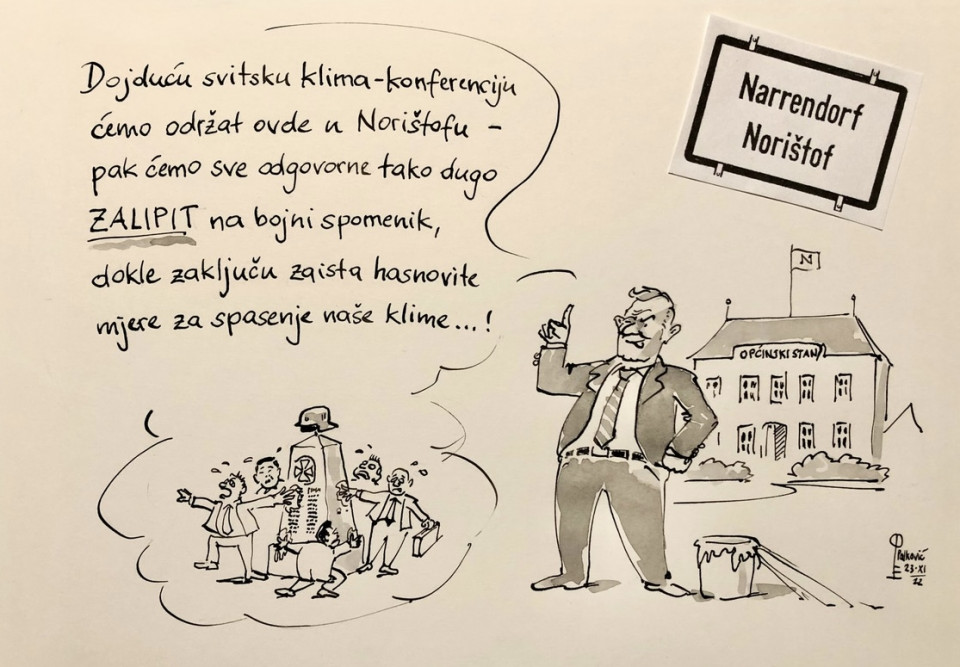 Dojduću svitsku klima-konferenciju
ćemo održat ovde u Norištofu -
pak ćemo sve odgovorne tako dugo
ZALIPIT na bojni spomenik,
dokle zaključu zaista hasnovite
mjere za spasenje naše klime...!
Narrendorf
Norištof
N
OPĆINSKI STAN
Palković
23·XI
22